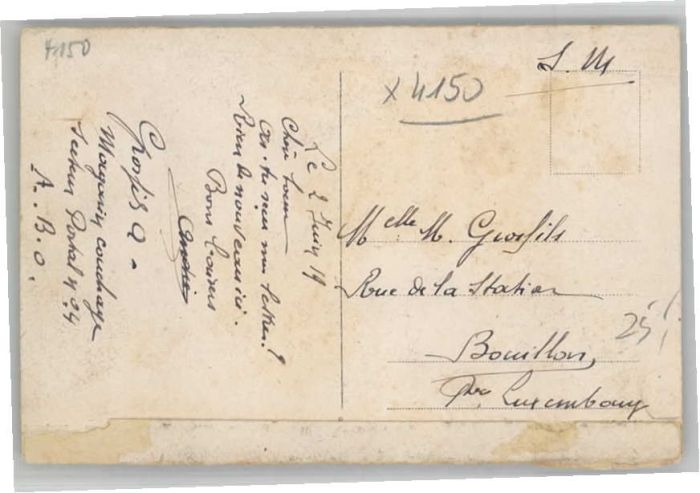 4150
S. M
x 4150
Le 2 Juin 19
Chère Soeur
As-tu reçu ma lettre?
Rien de nouveau ici.
Bons baisers
André
Grosfils A -
Magasin couchage
Secteur Postal N 04
A. B. O.
Melle M. Grosfils
Rue de la Station
Bouillon,
Pce Luxembourg
25